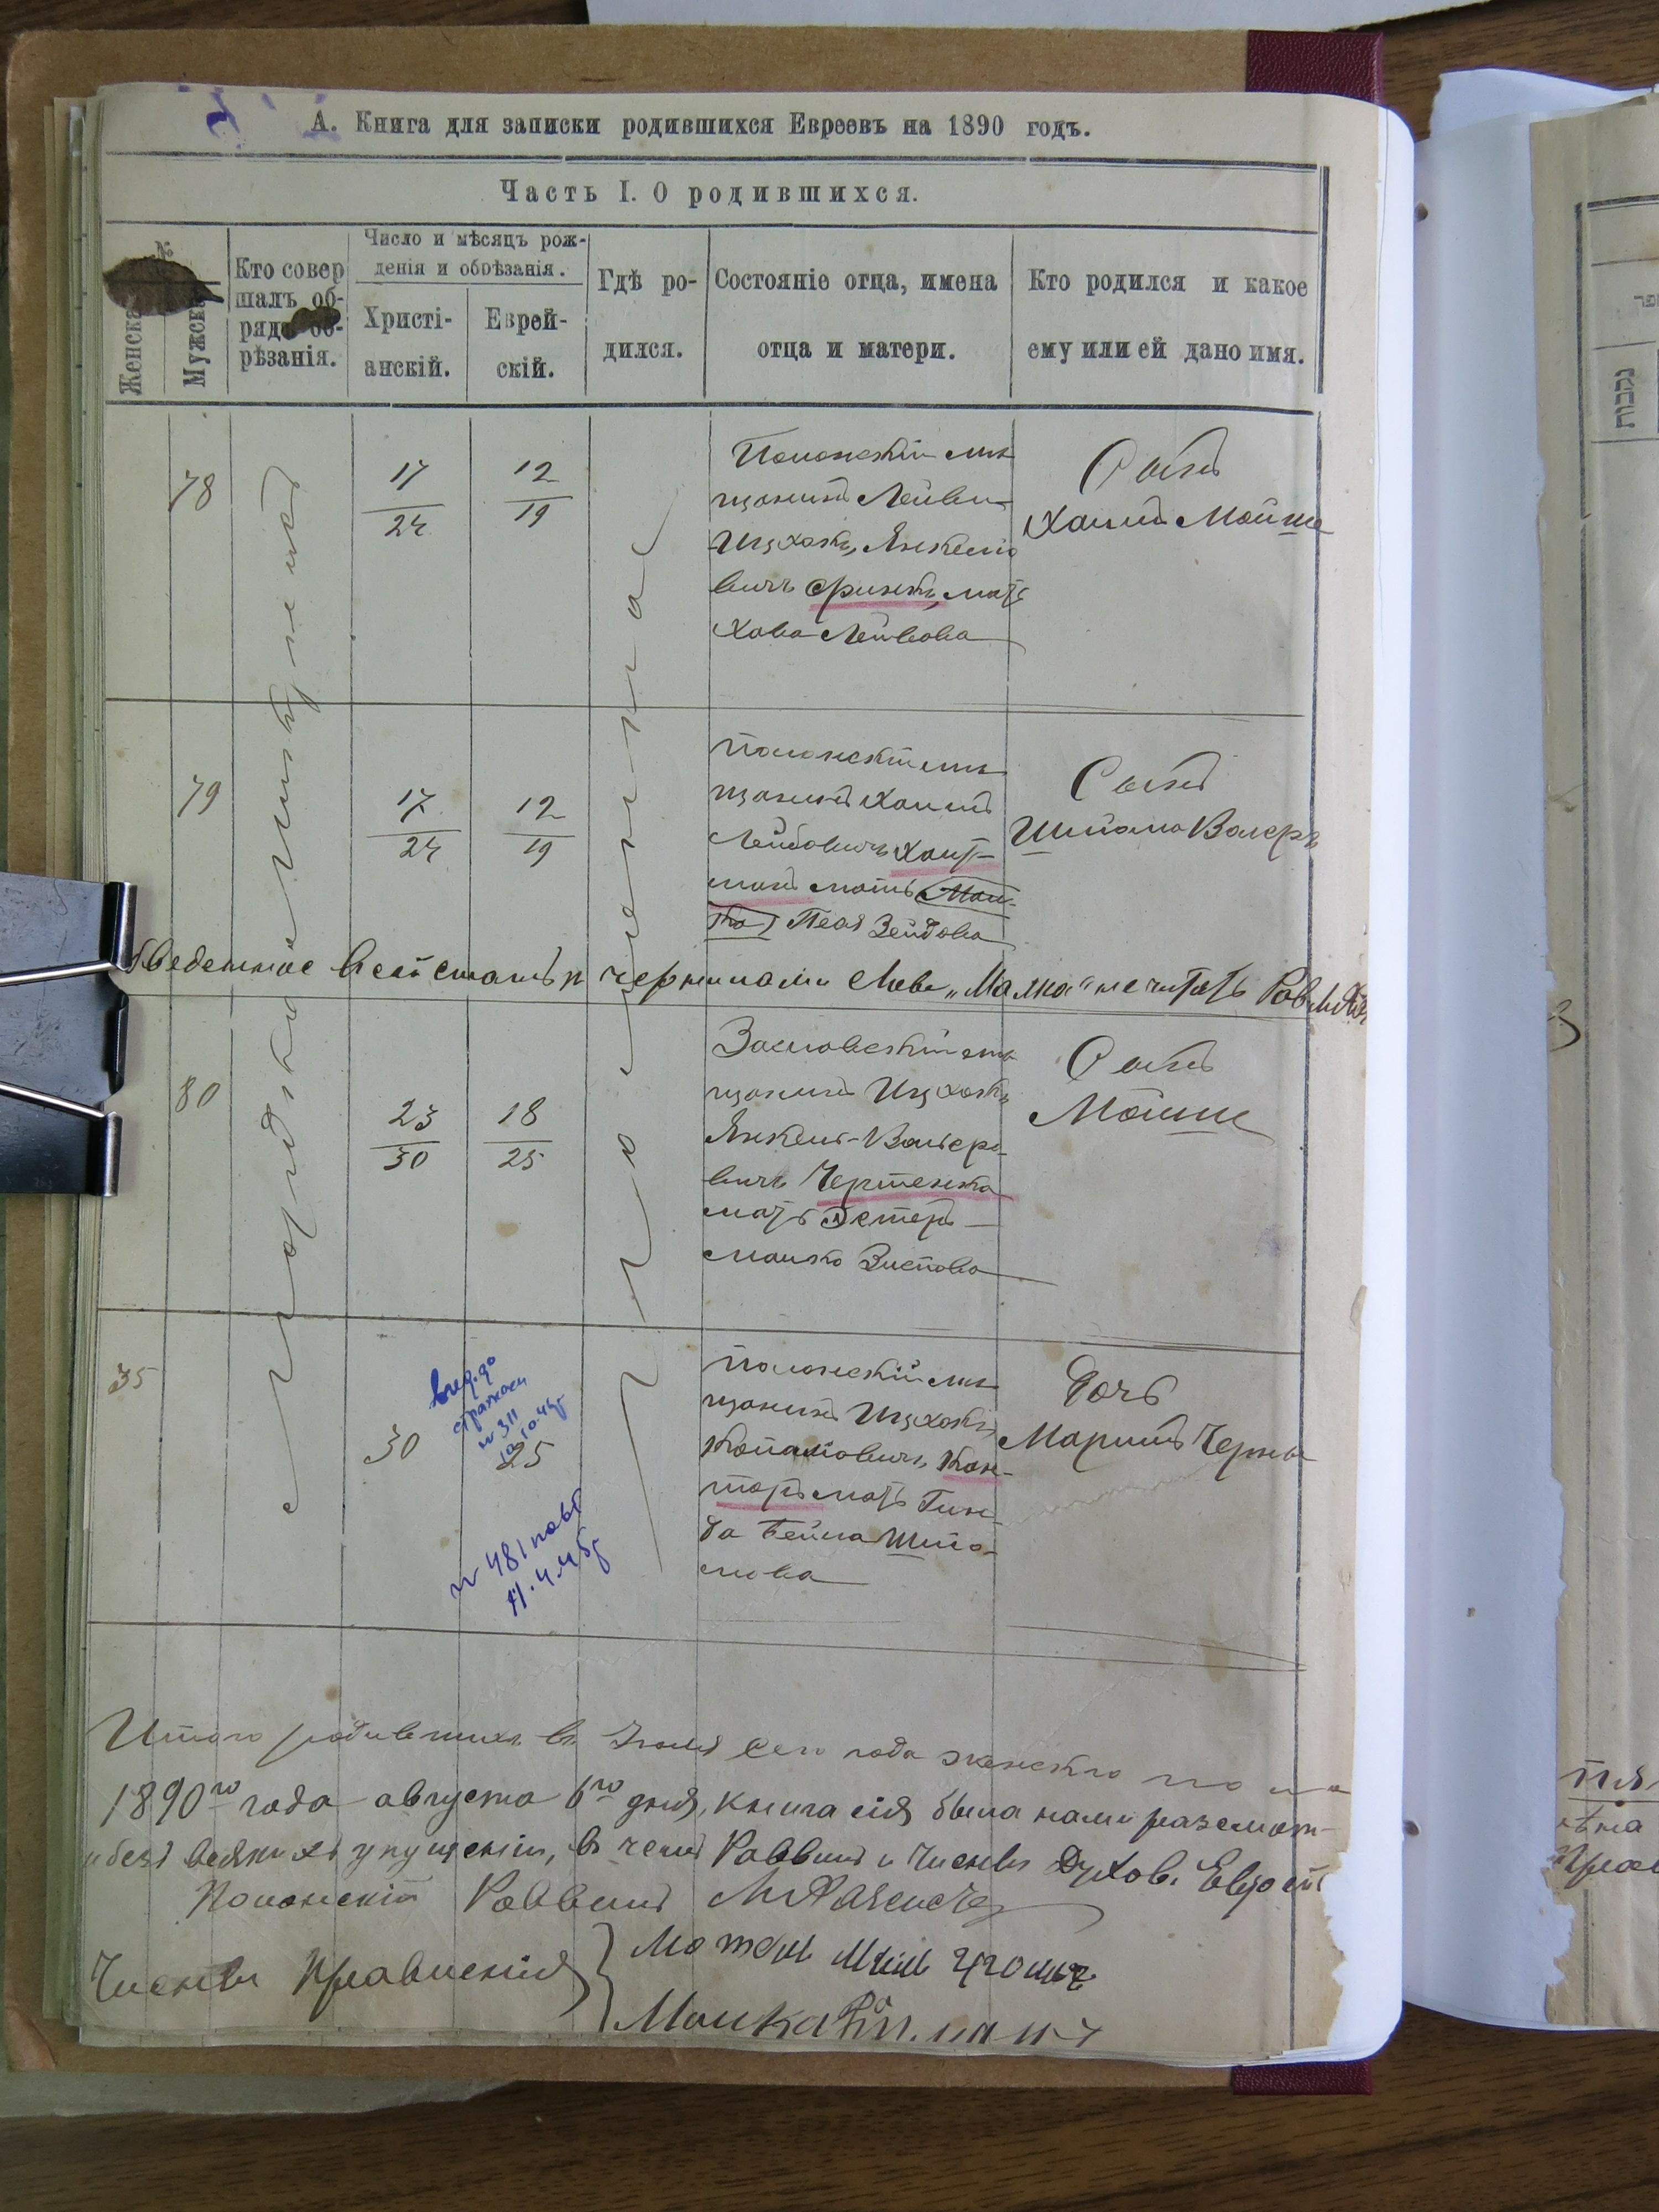 А. Книга для записки родившихся Евреевъ на 1890 годъ.
Часть I. О родившихся.
№
Женска
Мужск
Кто совер
шалъ об-
рядъ об-
рѣзанія.
Число и мѣсяцъ рож-
денія и обрѣзанія.
Христі-
анскій.
Еврей-
скій.
Гдѣ ро-
дился.
Состояніе отца, имена
отца и матери.
Кто родился и какое
ему или ей дано имя.
78
17
24
12
19
Полонскій мѣ
щанинъ Лейви
Ицхокъ Янкелю
вичъ Финкъ, мать
Хава Лейвова
Сынъ
Хаимъ Мойше
79
17
24
12
19
Полонскій мѣ
щанинъ Хаимъ
Лейбовичъ Хаит-
манъ мать Мал-
ка Песя Зейдова
Сынъ
Шлёма Волеръ
въ сей статьѣ чернилами слово „Малка" не читать Рав
80
23
30
18
25
Заславскій мѣ
щанинъ Ицхокъ
Янкель-Вольеро
вичъ Чертенко
мать Эстеръ
Малка Зислова
Сынъ
Мойше
35
30
25
выд. до
№ 311
10.10.44г
№ 481 повт
11.4.45г
Полонскій мѣ
щанинъ Ицхокъ
Копелёвичъ Кан-
торъ мать Гин-
да Бейла Шлё-
мова
Дочь
Маріимъ Черны
Итого родившихся въ Іюлѣ сего года женского по
1890го года августа 6го дня, книга сія была нами разсмот-
и безъ всякихъ упущеній, въ чемъ Раввинъ и Члены Духов.
Полонскій Раввинъ
Члены Правленія
Мотель